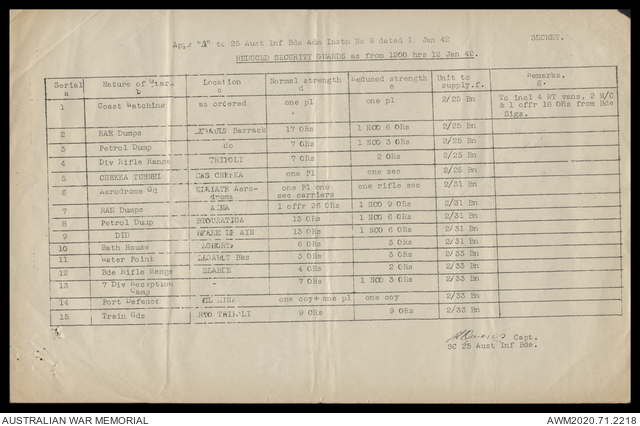 Appx "A" to 25 Aust Inf Bde Adm Instn No 9 dated 1 Jan 42 SECRET.
REDUCED SECURITY GUARDS as from 1200 hrs 12 Jan 42.
Serial Nature of Guard Location Normal strength Reduced strength Unit to Remarks.
a b c d e supply.f. g.
1 Coast Watching as ordered one pl one pl 2/25 Bn To incl 4 WT vans, 2 M/C
& 1 offr 18 ORs from Bde
Sigs.
2 RAE Dumps Barrack 17 ORs 1 NCO 6 ORs 2/25 Bn
3 Petrol Dump do 7 ORs 1 NCO 3 ORs 2/25 Bn
4 Div Rifle Range TRIPOLI 7 ORs 2 ORs 2/25 Bn
5 CHEKKA TUNNEL RAS CHEKKA one Pl one sec 2/25 Bn
6 Aerodrome Gd Aero- one Pl one one rifle sec 2/31 Bn
drome sec carriers
7 RAE Dumps ALMA 1 offr 26 ORs 1 NCO 9 ORs 2/31 Bn
8 Petrol Dump BTOURATIGA 13 ORs 1 NCO 6 ORs 2/31 Bn
9 DID AIN 13 ORs 1 NCO 6 ORs 2/31 Bn
10 Bath House 6 ORs 3 ORs 2/31 Bn
11 Water Point Bks 3 ORs 3 ORs 2/33 Bn
12 Bde Rifle Range 4 ORs 2 ORs 2/33 Bn
13 7 Div Reception - 7 ORs 1 NCO 3 ORs 2/33 Bn
Camp
14 Port Defence EL MINA one coy+ one pl one coy 2/33 Bn
15 Train Gds RTO TRIPOLI 9 ORs 9 ORs 2/33 Bn
Capt.
SC 25 Aust Inf Bde.
AUSTRALIAN WAR MEMORIAL AWM2020.71.2218